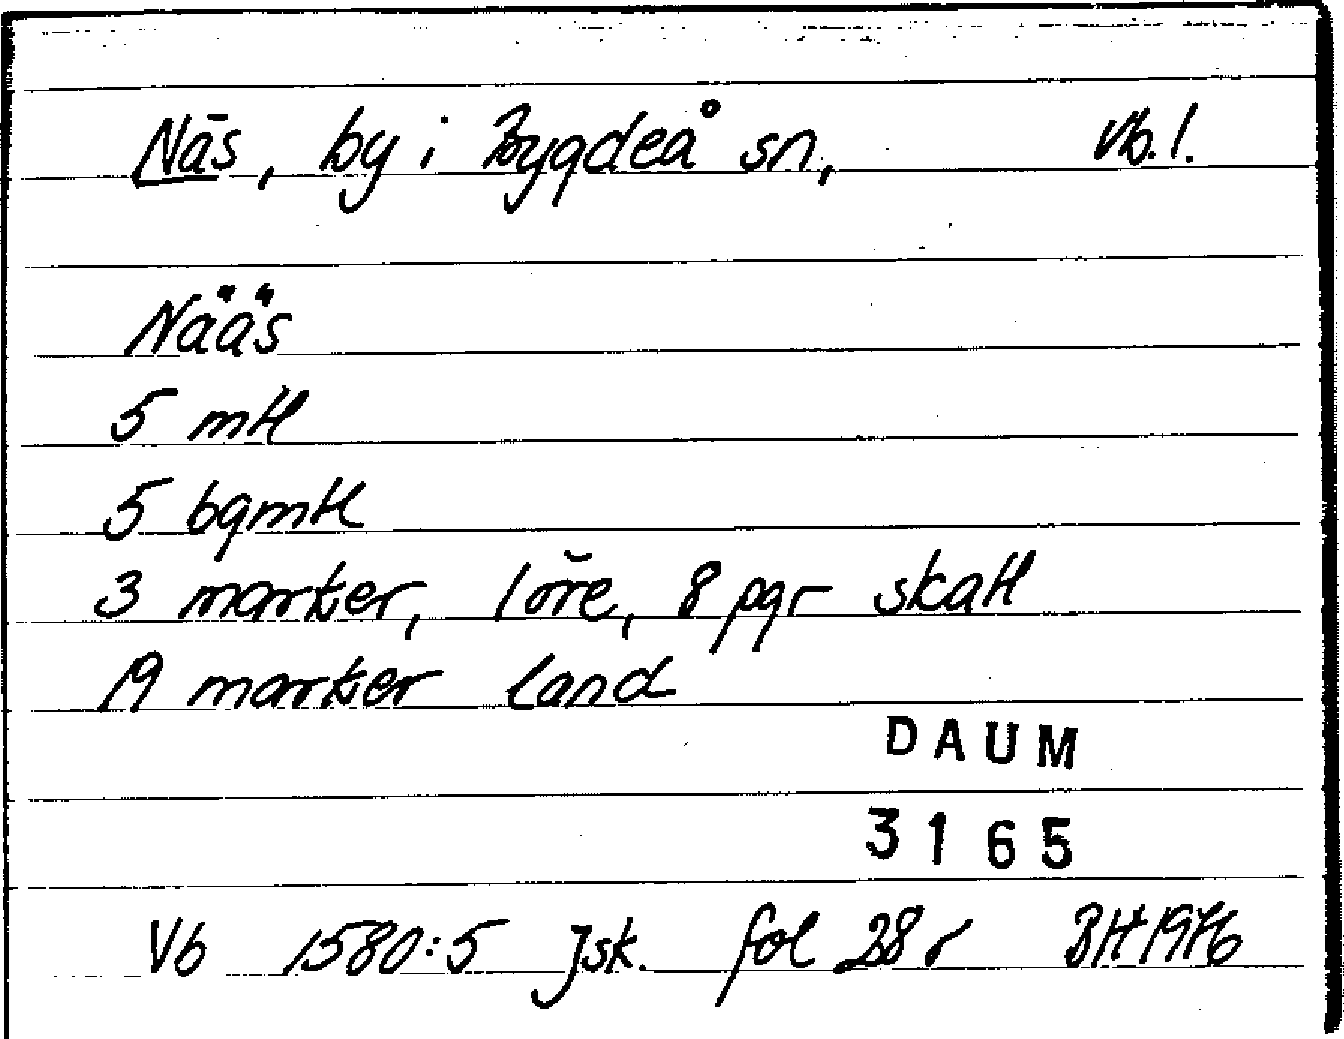 Näs, by i Bygdeå sn, Vb. l.
Nääs
5 mtl
5 bgmtl
3 marker, 1 öre, 8 pgr skatt
19 marker land
DAUM
3165
Vb 1580:5 Jsk. fol 28 r BH 1976